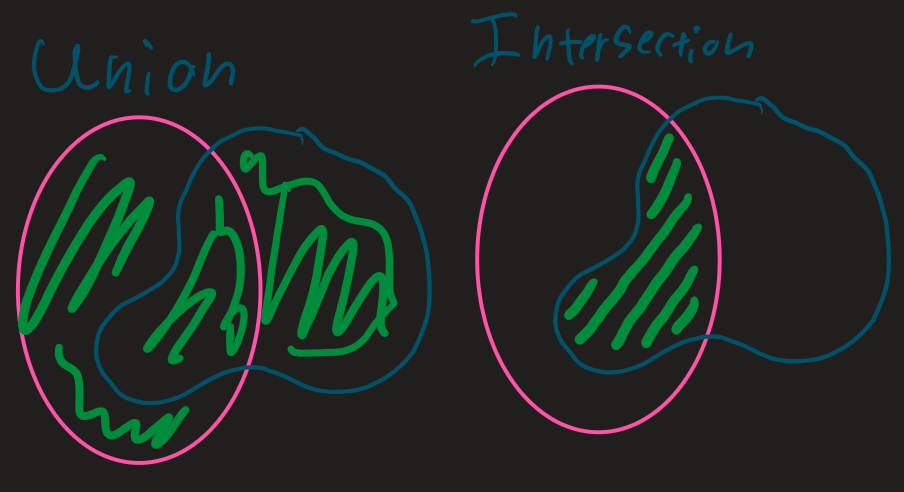 Union
Intersection